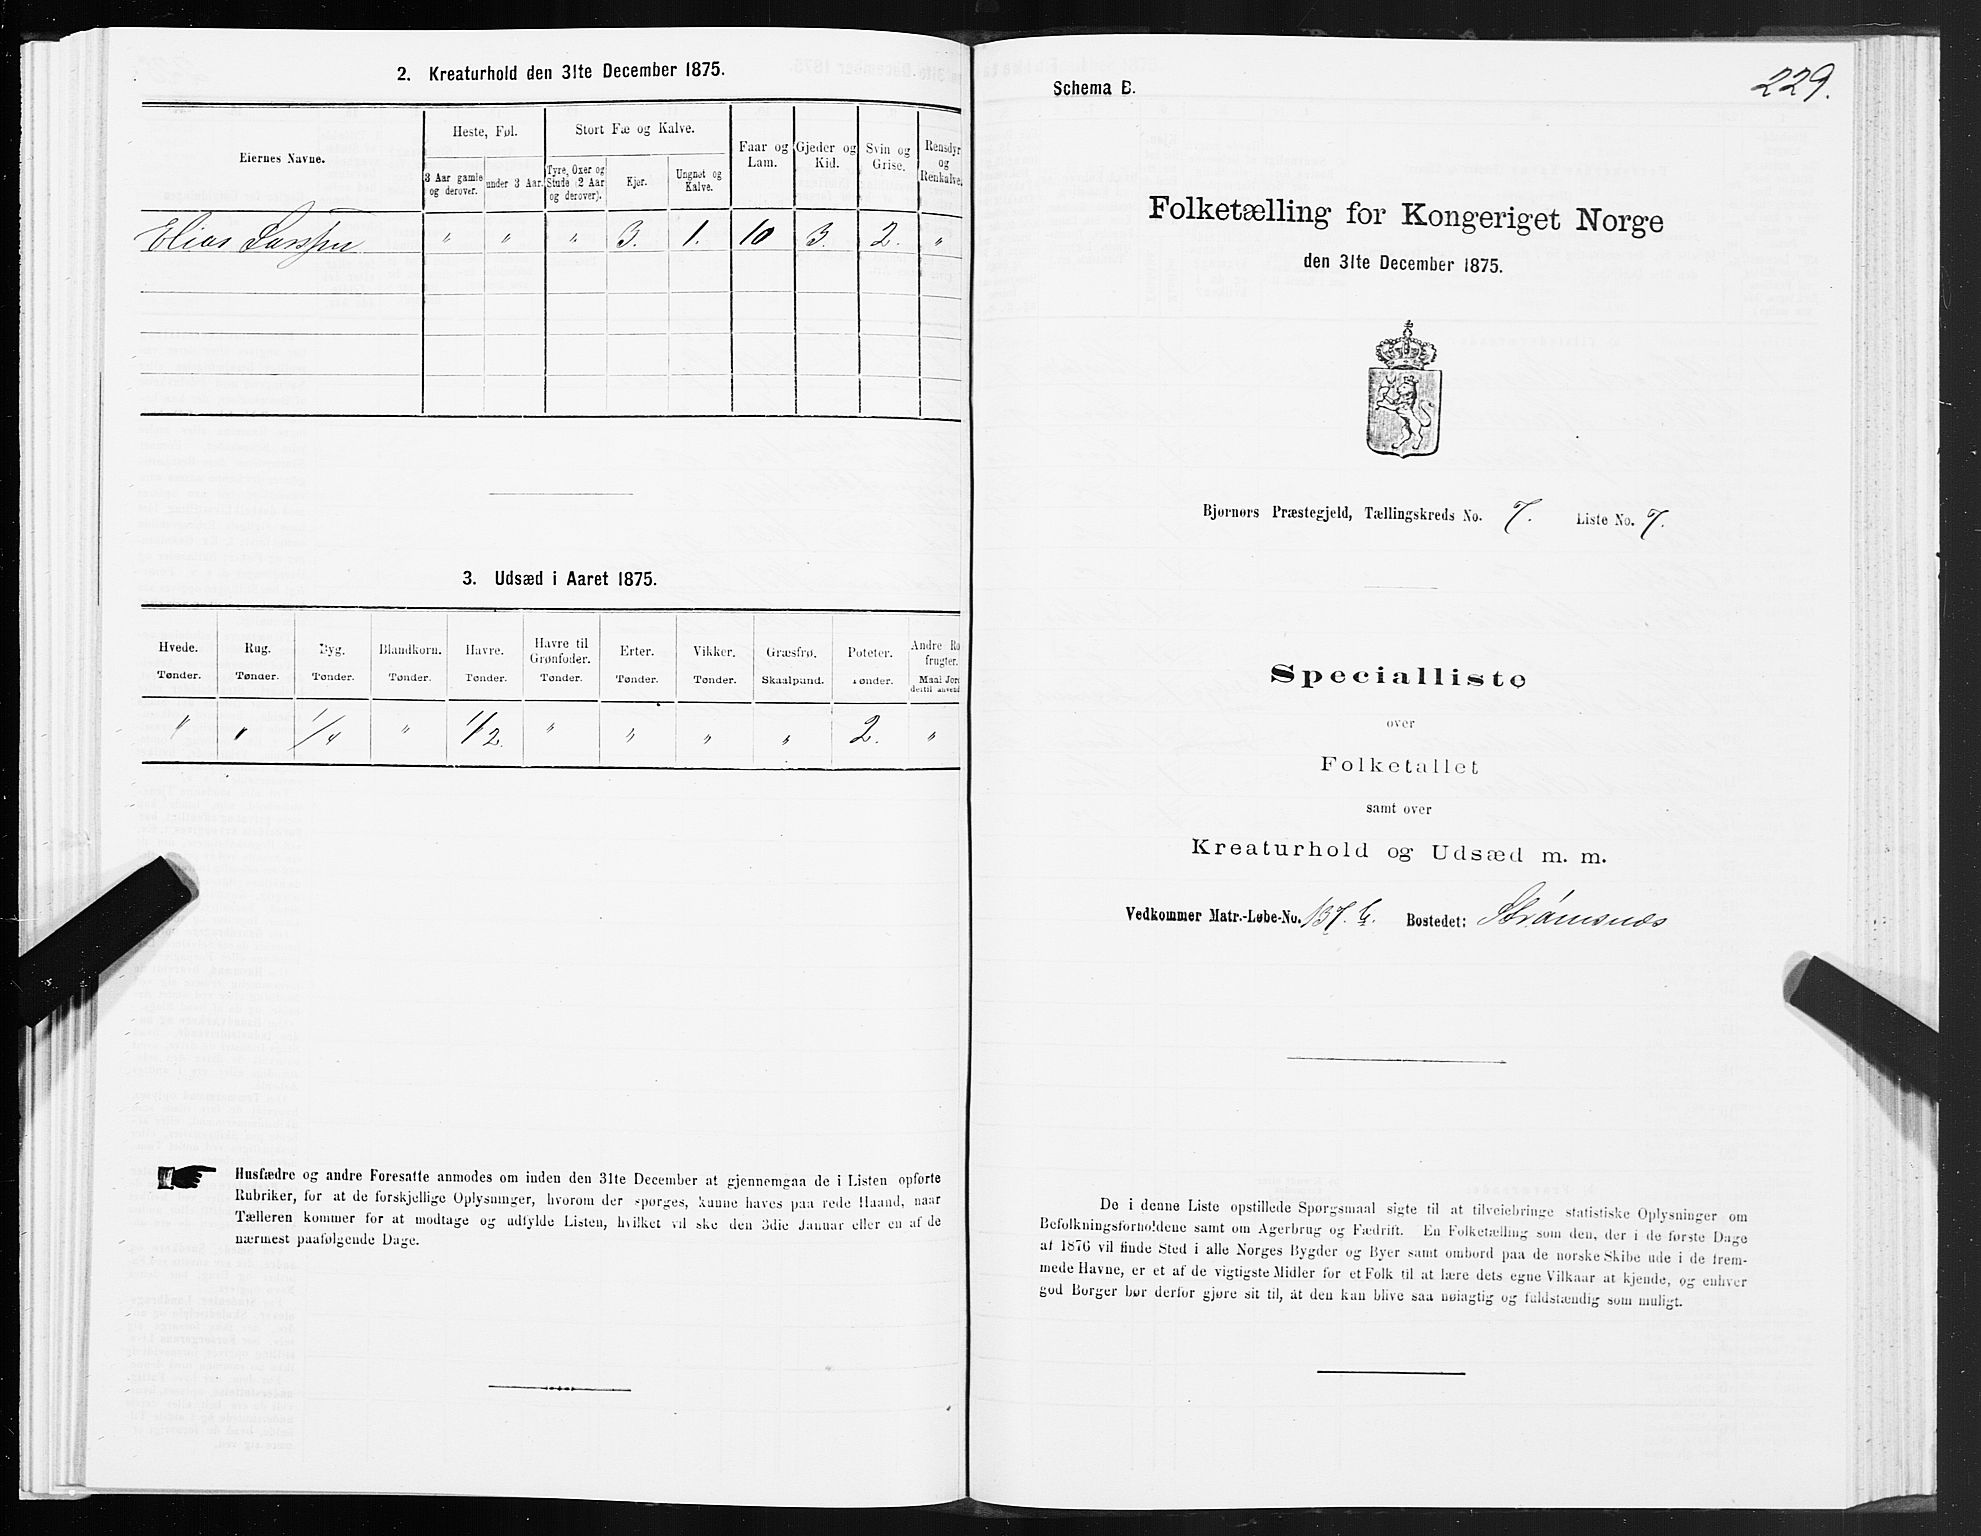 2. Kreaturhold den 31te December 1875.
Eiernes Navne.
Heste, Føl.
3 Aar gamle og derover.
under 3 Aar.
Stort Fæ og Kalve.
Tyre, Oxer og Stude (2 Aar og derover).
Kjør.
Ungnøt og Kalve.
Faar og Lam.
Gjeder og Kid.
Svin og Grise.
Rensdyr og Renkalve.
Elias " " " 3. 1. 10 3. 2. "
3. Udsæd i Aaret 1875.
Hvede. Rug. Byg. Blandkorn. Havre. Havre til Grønfoder. Erter. Vikker. Græsfrø. Poteter. Andre Ro frugter.
Tønder. Tønder. Tønder. Tønder. Tønder. Tønder. Tønder. Tønder. Skaalpund. Tønder. Maal Jord dertil anvend
" " 1/4 " 1/2. " " " " 2. "
Husfædre og andre Foresatte anmodes om inden den 31te December at gjennemgaa de i Listen opførte
Rubriker, for at de forskjellige Oplysninger, hvorom der spørges, kunne haves paa rede Haand, naar
Tælleren kommer for at modtage og udfylde Listen, hvilket vil ske den 3die Januar eller en af de
nærmest paafølgende Dage.
229.
Schema B.
Folketælling for Kongeriget Norge
den 31te December 1875.
Bjørnørs Præstegjeld, Tællingskreds No. 7. Liste No. 7.
Specialliste
over
Folketallet
samt over
Kreaturhold og Udsæd m. m.
Vedkommer Matr.-Løbe-No. 137. Bostedet: Strømsnæs
De i denne Liste opstillede Spørgsmaal sigte til at tilveiebringe statistiske Oplysninger om
Befolkningsforholdene samt om Agerbrug og Fædrift. En Folketælling som den, der i de første Dage
af 1876 vil finde Sted i alle Norges Bygder og Byer samt ombord paa de norske Skibe ude i de frem-
mede Havne, er et af de vigtigste Midler for et Folk til at lære dets egne Vilkaar at kjende, og enhver
god Borger bør derfor gjøre sit til, at den kan blive saa nøiagtig og fuldstændig som muligt.